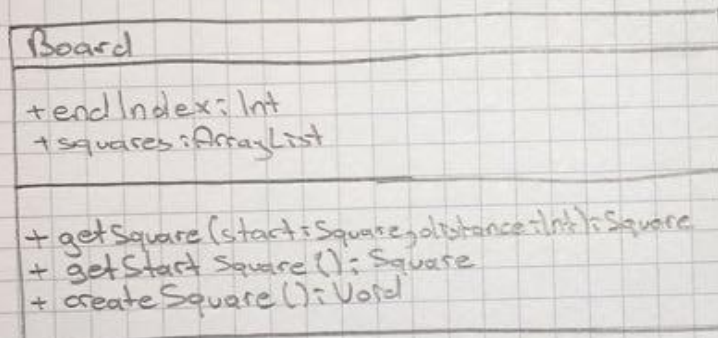 Board
+endIndex: Int
+squares: ArrayList
+ getSquare(start: Square, distance: Int): Square
+ getStart Square(): Square
+ createSquare(): Void